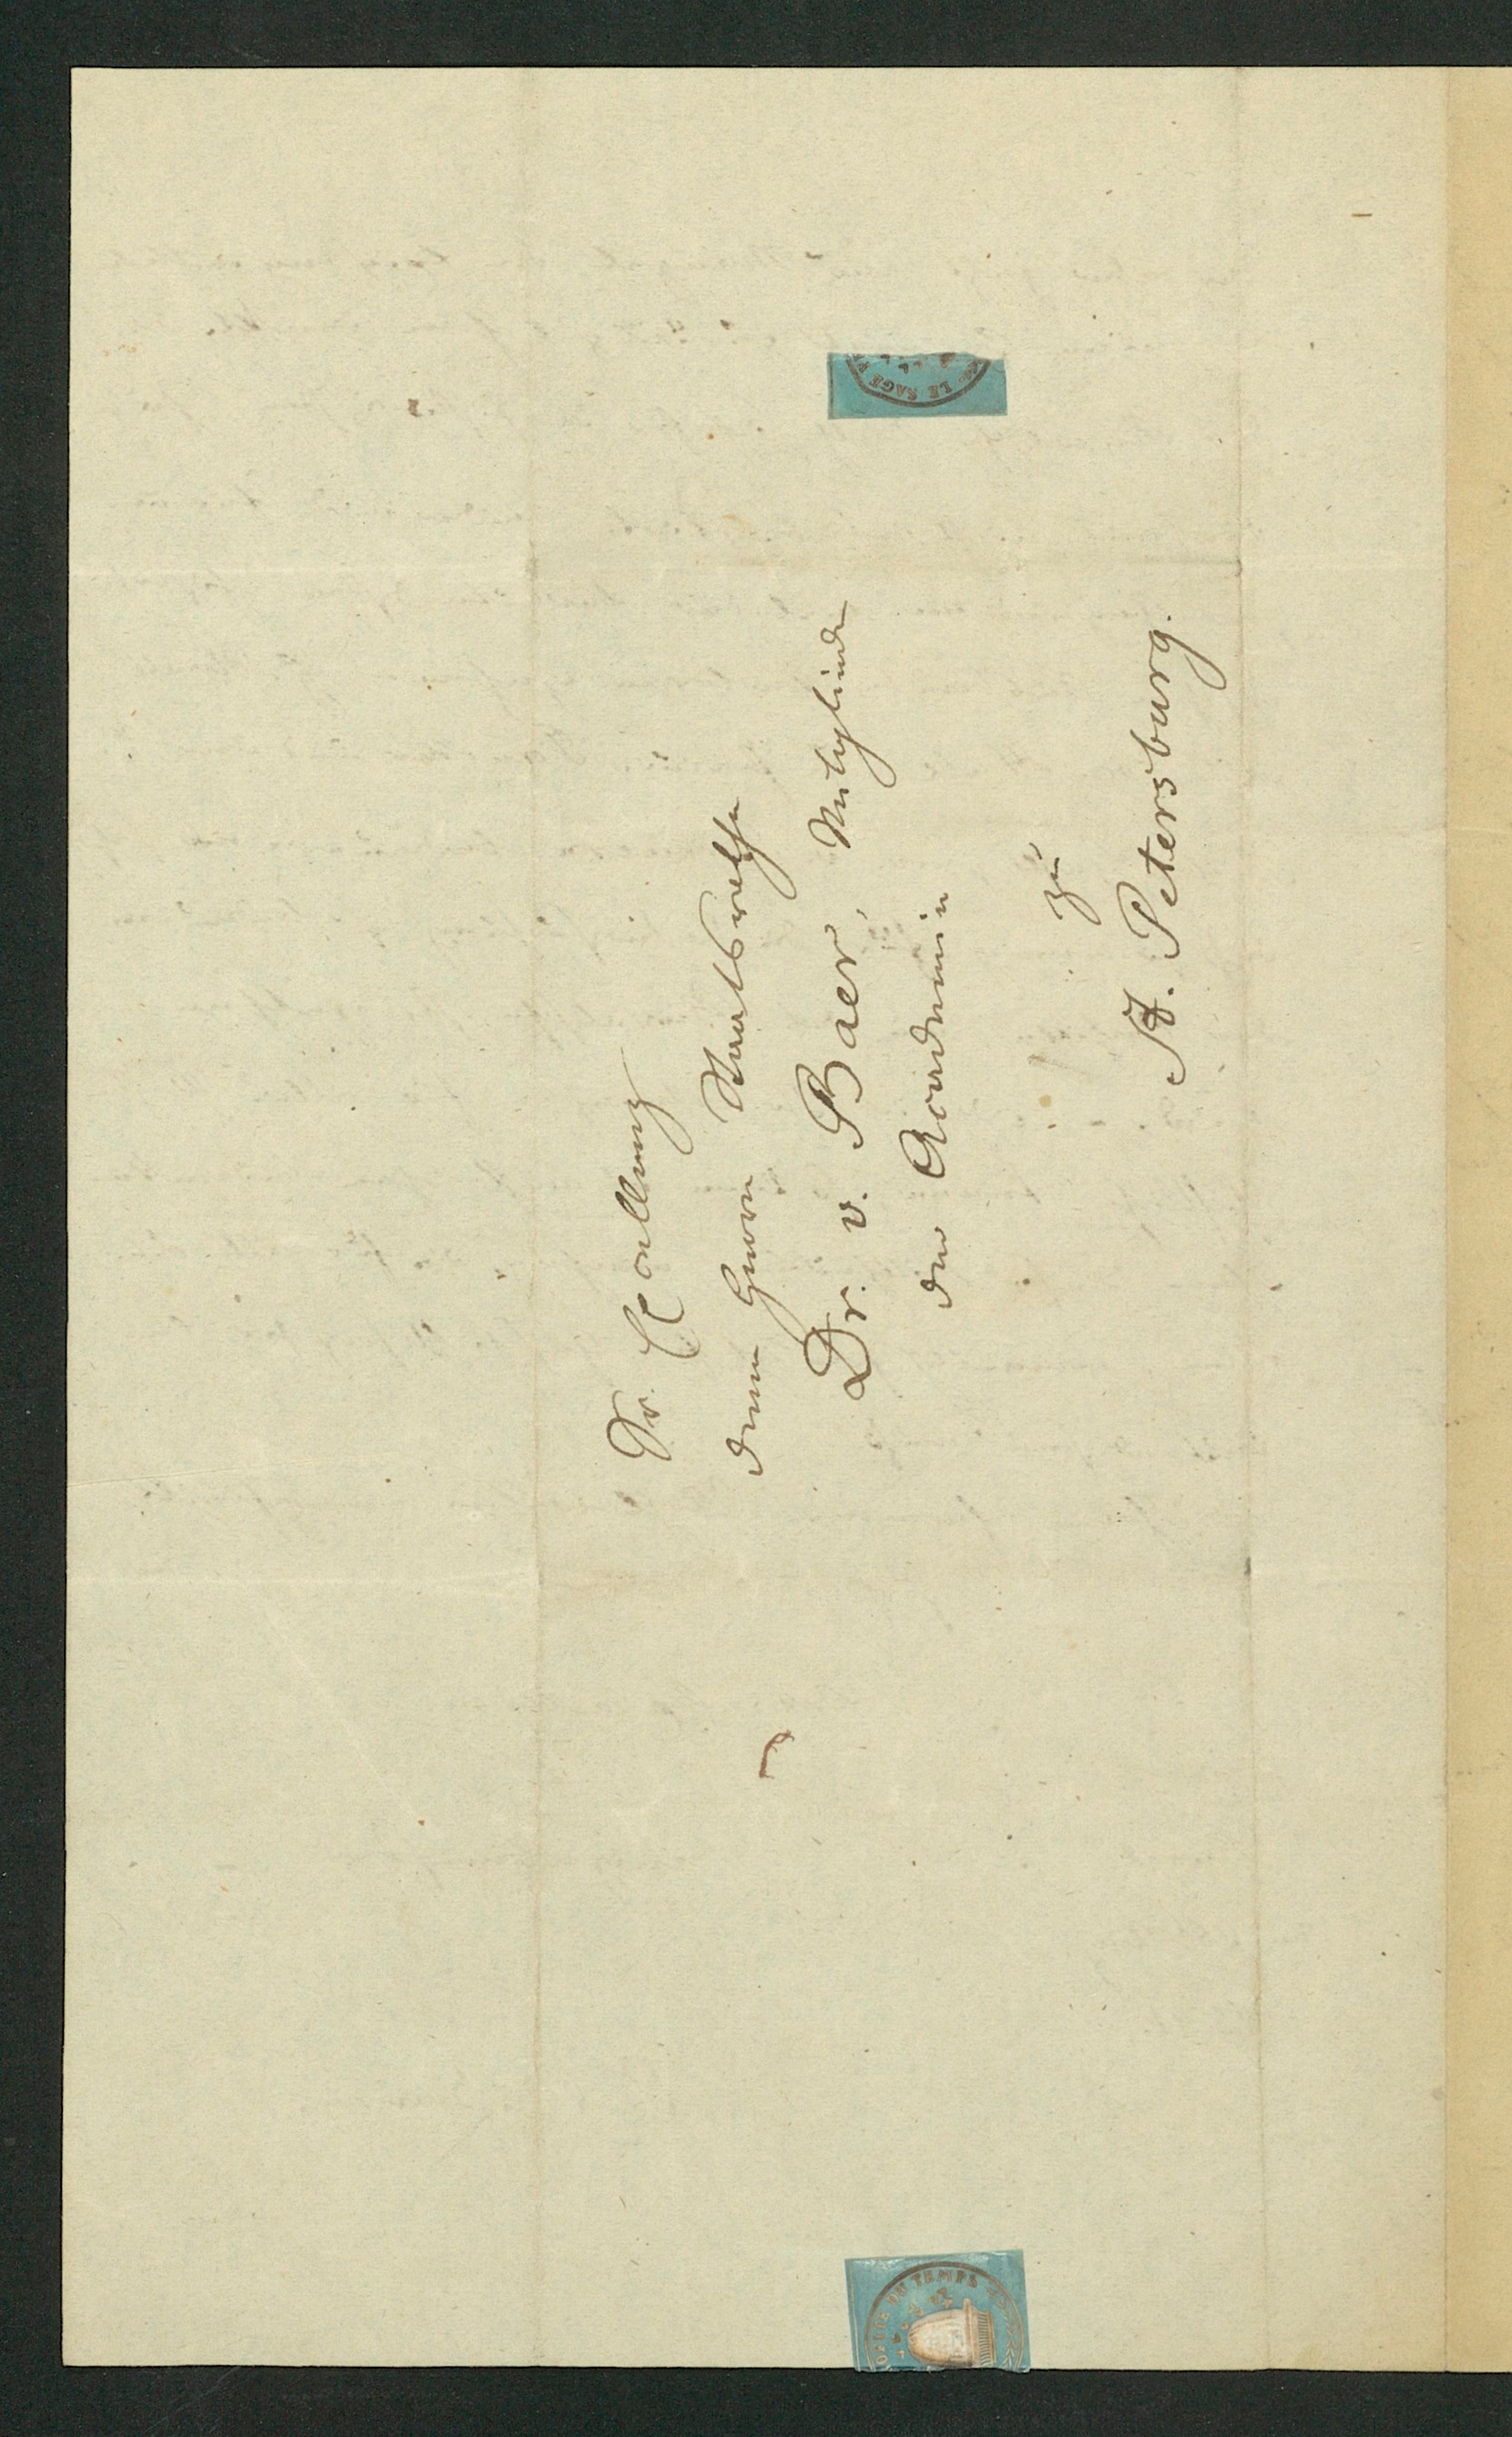 Sr Excellenz
dem Herrn Staatsrathe
Dr. v. Baer, Mitgliede
der Academie
zu
St. Petersburg.
LE SAGE
DU TEMPS